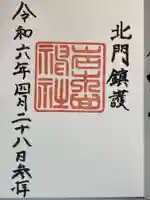 北門鎮護
神社
令和六年四月二十八日参拝